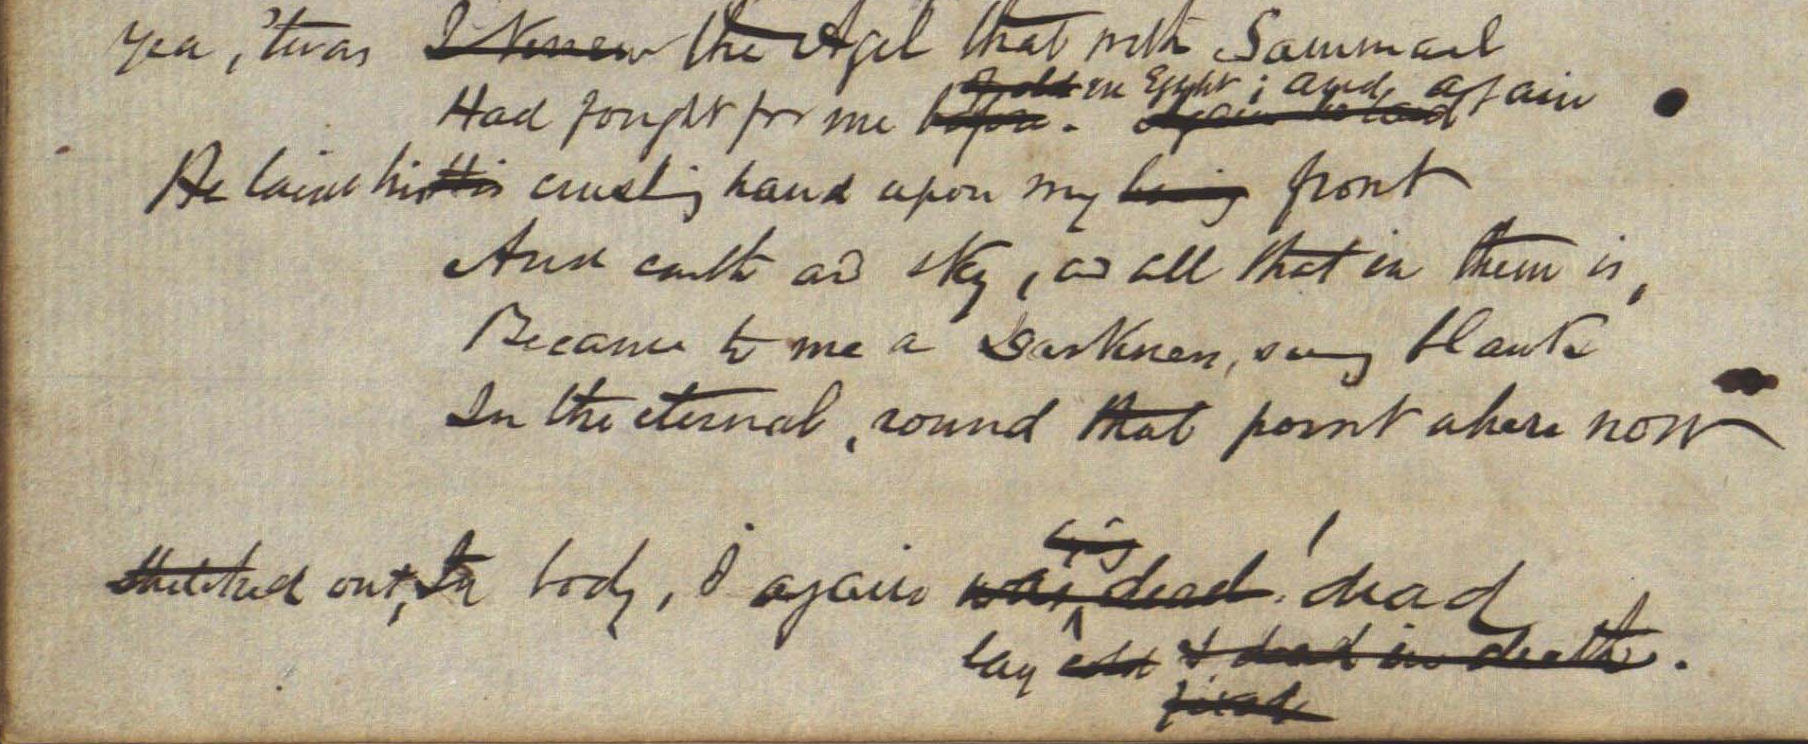 yea, 'twas I Knew the Agel that with Sammael
of old in Egypt; and, again
Had fought for me before. Again he laid
He laid his crushing hand upon my living front
And earth and sky, and all that in them is,
Became to me a Darkness, swimg blank
In the eternal, round that point where now
living
stretched out, In body, I again was dead! dead
lay cold & dead in death.